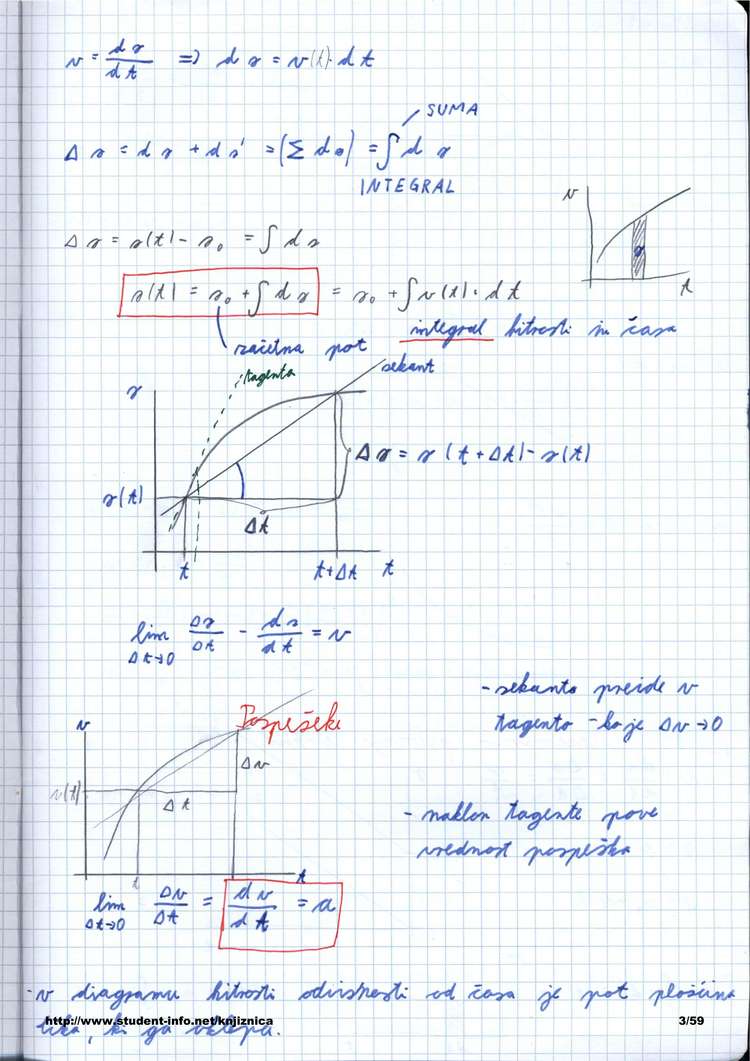 v = ds/dt => ds = v(t)·dt
SUMA
Δs = ds + ds' = (Σ ds) = ∫ds
INTEGRAL
v
s
t
Δs = s(t) - s₀ = ∫ds
s(t) = s₀ + ∫ds = s₀ + ∫v(t)·dt
integral hitrosti in časa
začetna pot
tagenta
sekant
s
Δs = s(t+Δt) - s(t)
s(t)
Δt
t
t+Δt
t
lim Δt→0 Δs/Δt - ds/dt = v
- sekanta preide v
tagento - ko je Δv→0
Pospešek
v
Δv
v(t)
Δt
- naklon tagente pove
vrednost pospeška
t
t
lim Δt→0 Δv/Δt = dv/dt = a
- v diagramu hitrosti odvisnosti od časa je pot ploščina
lika, ki ga vklepa.
http://www.student-info.net/knjiznica
3/59